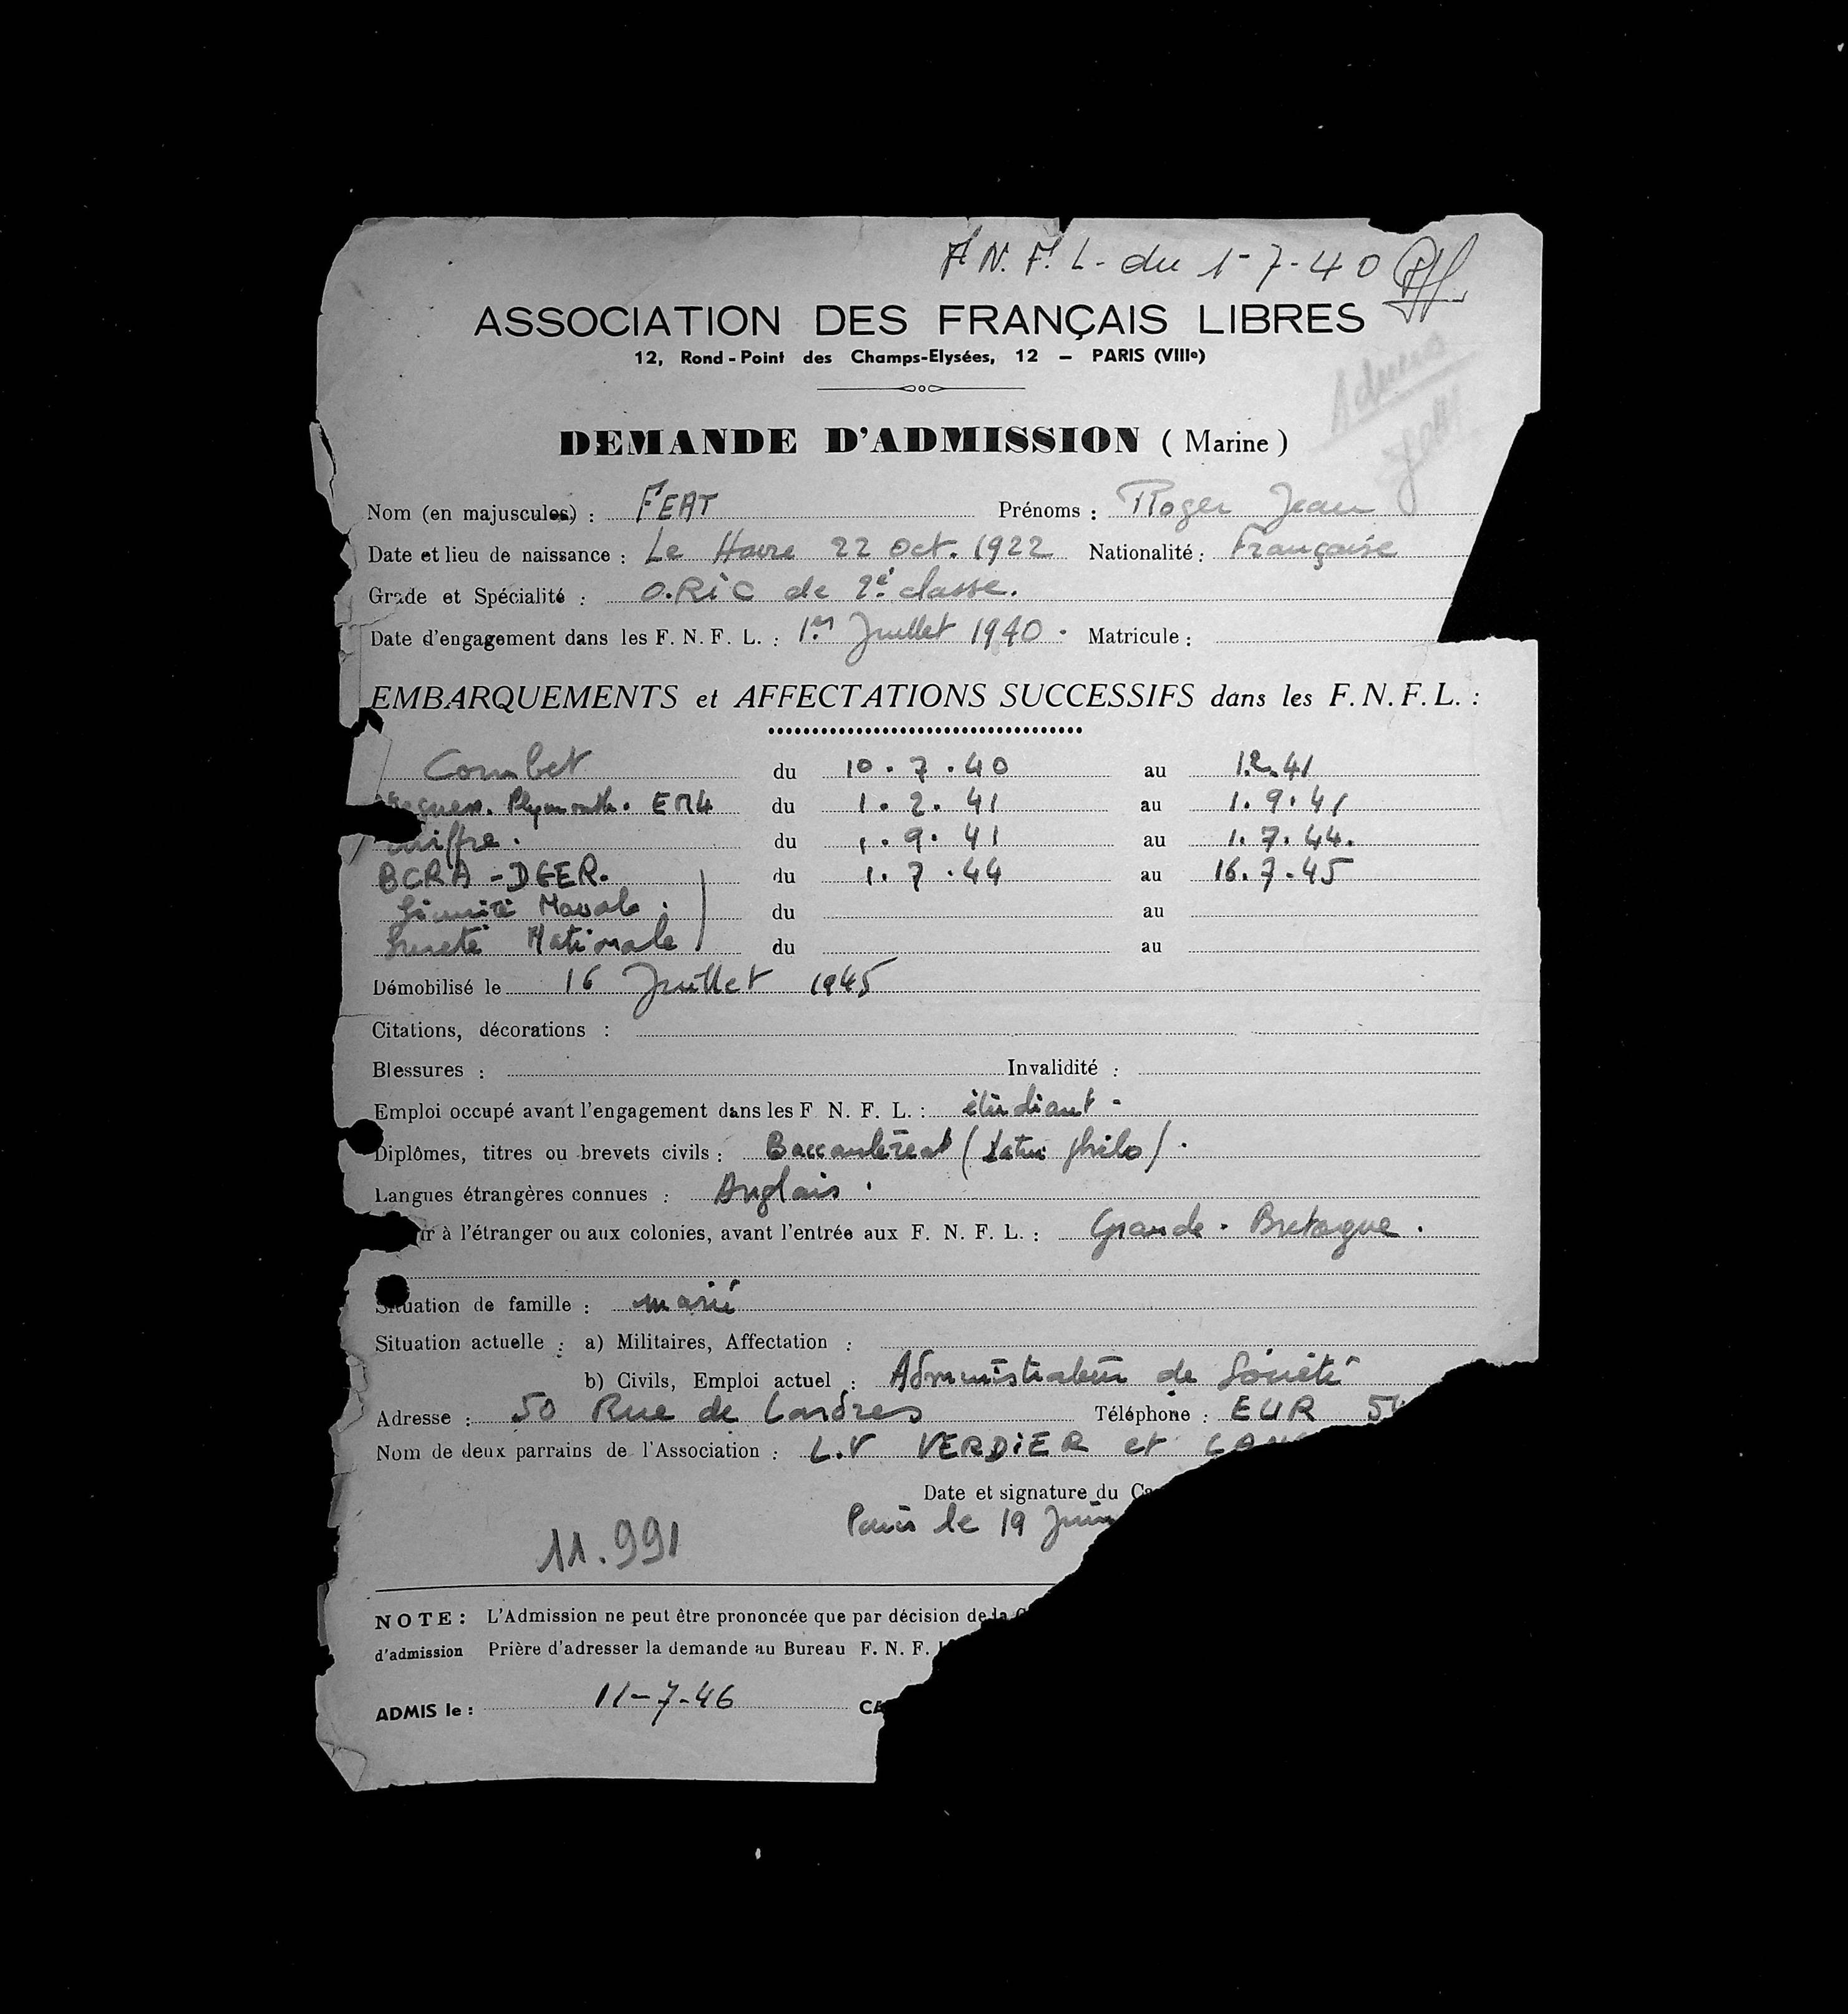 F.N.F.L. du 1-7-40
ASSOCIATION DES FRANÇAIS LIBRES
12, Rond-Point des Champs-Elysées, 12 — PARIS (VIIIe)
Admis
DEMANDE D'ADMISSION ( Marine )
Nom (en majuscules) : FEAT Prénoms : Roger Jean
Date et lieu de naissance : Le Havre 22 oct. 1922 Nationalité : Française
Grade et Spécialité : O.RIC de 2e classe.
Date d'engagement dans les F. N. F. L. : 1er Juillet 1940. Matricule :
EMBARQUEMENTS et AFFECTATIONS SUCCESSIFS dans les F.N.F.L. :
Combet du 10.7.40 au 1.2.41
Plymouth. EM4 du 1.2.41 au 1.9.41
iffre. du 1.9.41 au 1.7.44.
BCRA - DGER. du 1.7.44 au 16.7.45
Sécurité Navale. du au
Sureté Nationale du au
Démobilisé le 16 Juillet 1945
Citations, décorations :
Blessures : Invalidité :
Emploi occupé avant l'engagement dans les F N. F. L. : étudiant -
Diplômes, titres ou brevets civils : Baccauléreat (Latin philo).
Langues étrangères connues : Anglais.
ir à l'étranger ou aux colonies, avant l'entrée aux F. N. F. L. : Grande-Bretagne.
Situation de famille : marié
Situation actuelle : a) Militaires, Affectation :
b) Civils, Emploi actuel : Administrateur de Société
Adresse : 50 Rue de Londres Téléphone : EUR 5
Nom de deux parrains de l'Association : L.V VERDIER et
Date et signature du Ca
Paris le 19 Juin
11.991
NOTE : L'Admission ne peut être prononcée que par décision de la C
d'admission Prière d'adresser la demande au Bureau F. N. F. L
ADMIS le : 11-7-46 CA